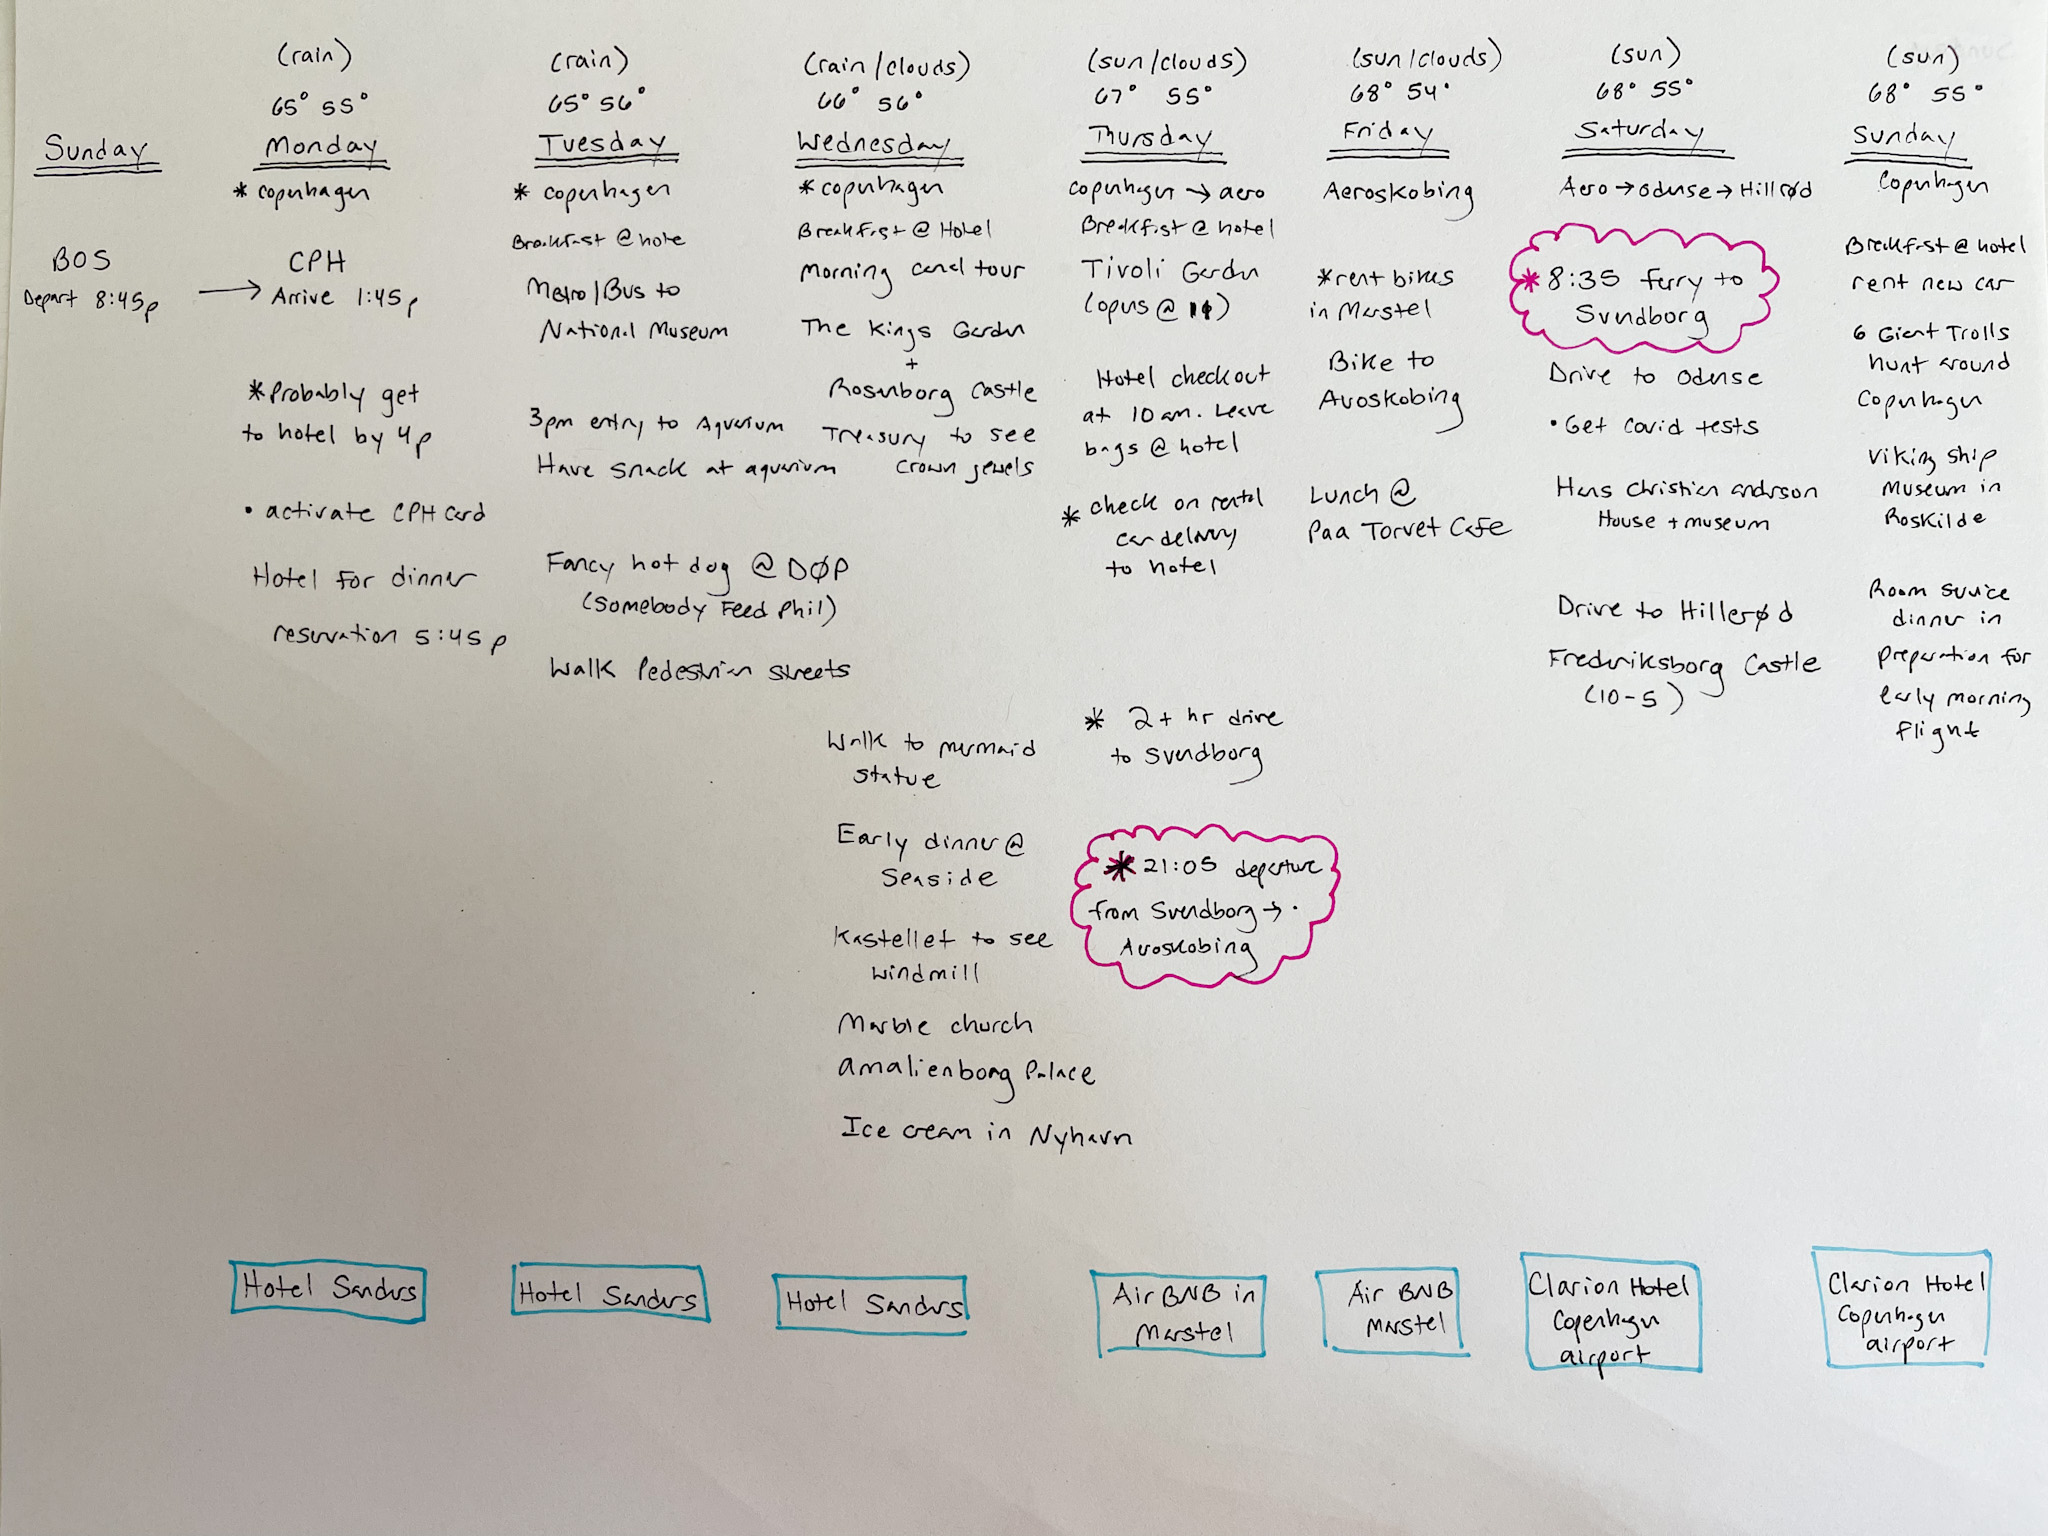 Sunday
BOS
Depart 8:45p
(rain)
65° 55°
Monday
* Copenhagen
CPH
Arrive 1:45p
*Probably get
to hotel by 4p
• activate CPH Card
Hotel for dinner
reservation 5:45p
Hotel Sanders
(rain)
65° 56°
Tuesday
* Copenhagen
Breakfast @ hote
Metro/Bus to
National Museum
3pm entry to Aquarium
Have snack at aquarium
Fancy hot dog @ DØP
(Somebody Feed Phil)
Walk Pedestrian streets
Hotel Sanders
(rain/clouds)
66° 56°
Wednesday
* Copenhagen
Breakfast @ Hotel
Morning canal tour
The Kings Garden
+
Rosenborg Castle
Treasury to see
crown jewels
Walk to mermaid
statue
Early dinner @
Seaside
Kastellet to see
windmill
Marble church
Amalienborg Palace
Ice cream in Nyhavn
Hotel Sanders
(sun/clouds)
67° 55°
Thursday
Copenhagen → aero
Breakfast @ hotel
Tivoli Garden
(opens @ 11)
Hotel checkout
at 10 am. Leave
bags @ hotel
* check on rental
car delivery
to hotel
* 2+ hr drive
to Svendborg
* 21:05 departure
from Svendborg →
Aeroskobing
Air BNB in
Marstel
(sun/clouds)
68° 54°
Friday
Aeroskobing
*rent bikes
in Marstel
Bike to
Aeroskobing
Lunch @
Paa Torvet Cafe
Air BNB
Marstel
(sun)
68° 55°
Saturday
Aero → Odense → Hillrød
* 8:35 ferry to
Svendborg
Drive to Odense
• Get covid tests
Hans Christian anderson
House + museum
Drive to Hillerød
Frederiksborg Castle
(10-5)
Clarion Hotel
Copenhagen
airport
(sun)
68° 55°
Sunday
Copenhagen
Breakfast @ hotel
rent new car
6 Giant Trolls
hunt around
Copenhagen
Viking ship
Museum in
Roskilde
Room service
dinner in
preparation for
early morning
flight
Clarion Hotel
Copenhagen
airport